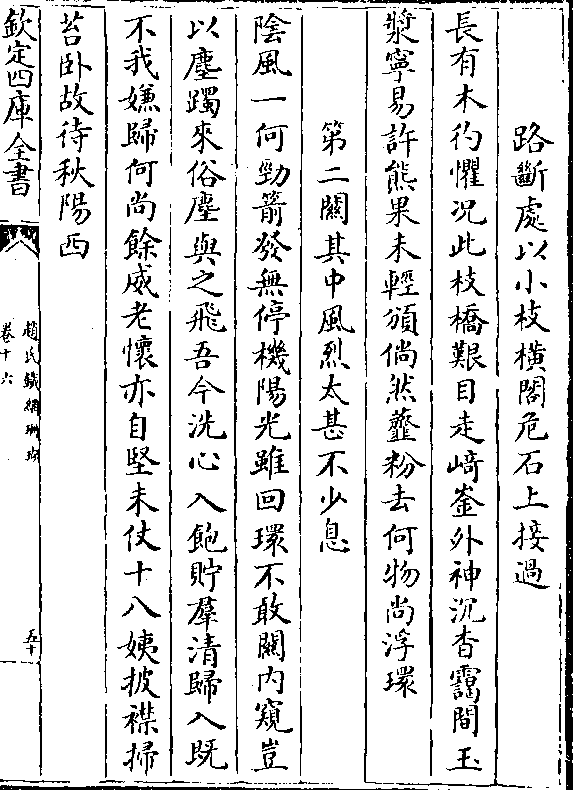 路斷處以小枝橫閣危石上接過
長有木彴懼况此枝橋艱目走﨑崟外神沉杳靄間玉
漿寧易許熊果未輕頒倘然虀粉去何物尚浮環
第二關其中風烈太甚不少息
陰風一何勁箭發無停機陽光雖回環不敢關内窺豈
以塵躅來俗塵與之飛吾今洗心入飽貯羣清歸入既
不我嫌歸何尚餘威老懷亦自堅未仗十八姨披襟掃
苔卧故待秋陽西
欽定四庫全書
趙氏鐵網珊瑚
卷十六
五十